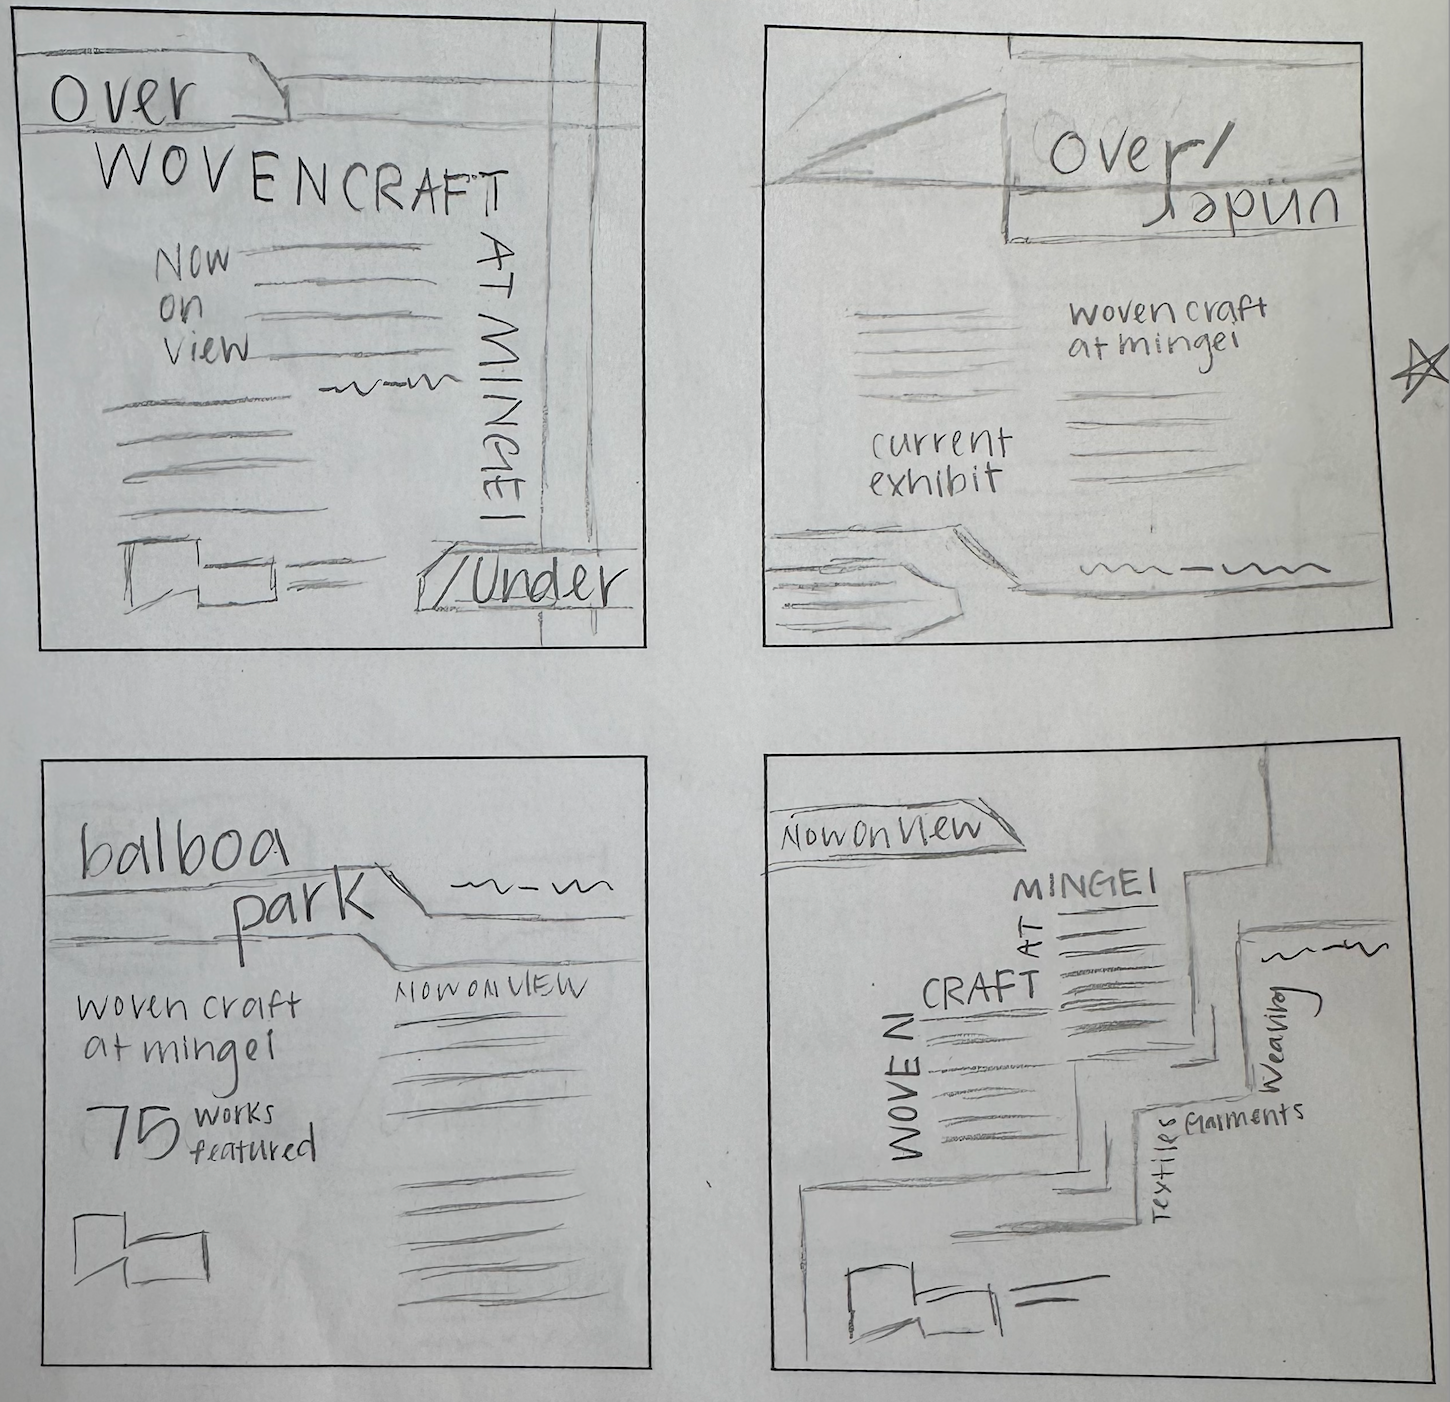 Over
WOVEN CRAFT
AT MINGEI
Now
on
view
/Under
Over/
under
woven craft
at mingei
current
exhibit
balboa
park
NOW ON VIEW
woven craft
at mingei
75 works
featured
Now On View
MINGEI
AT
CRAFT
WOVEN
Weaving
Garments
Textiles